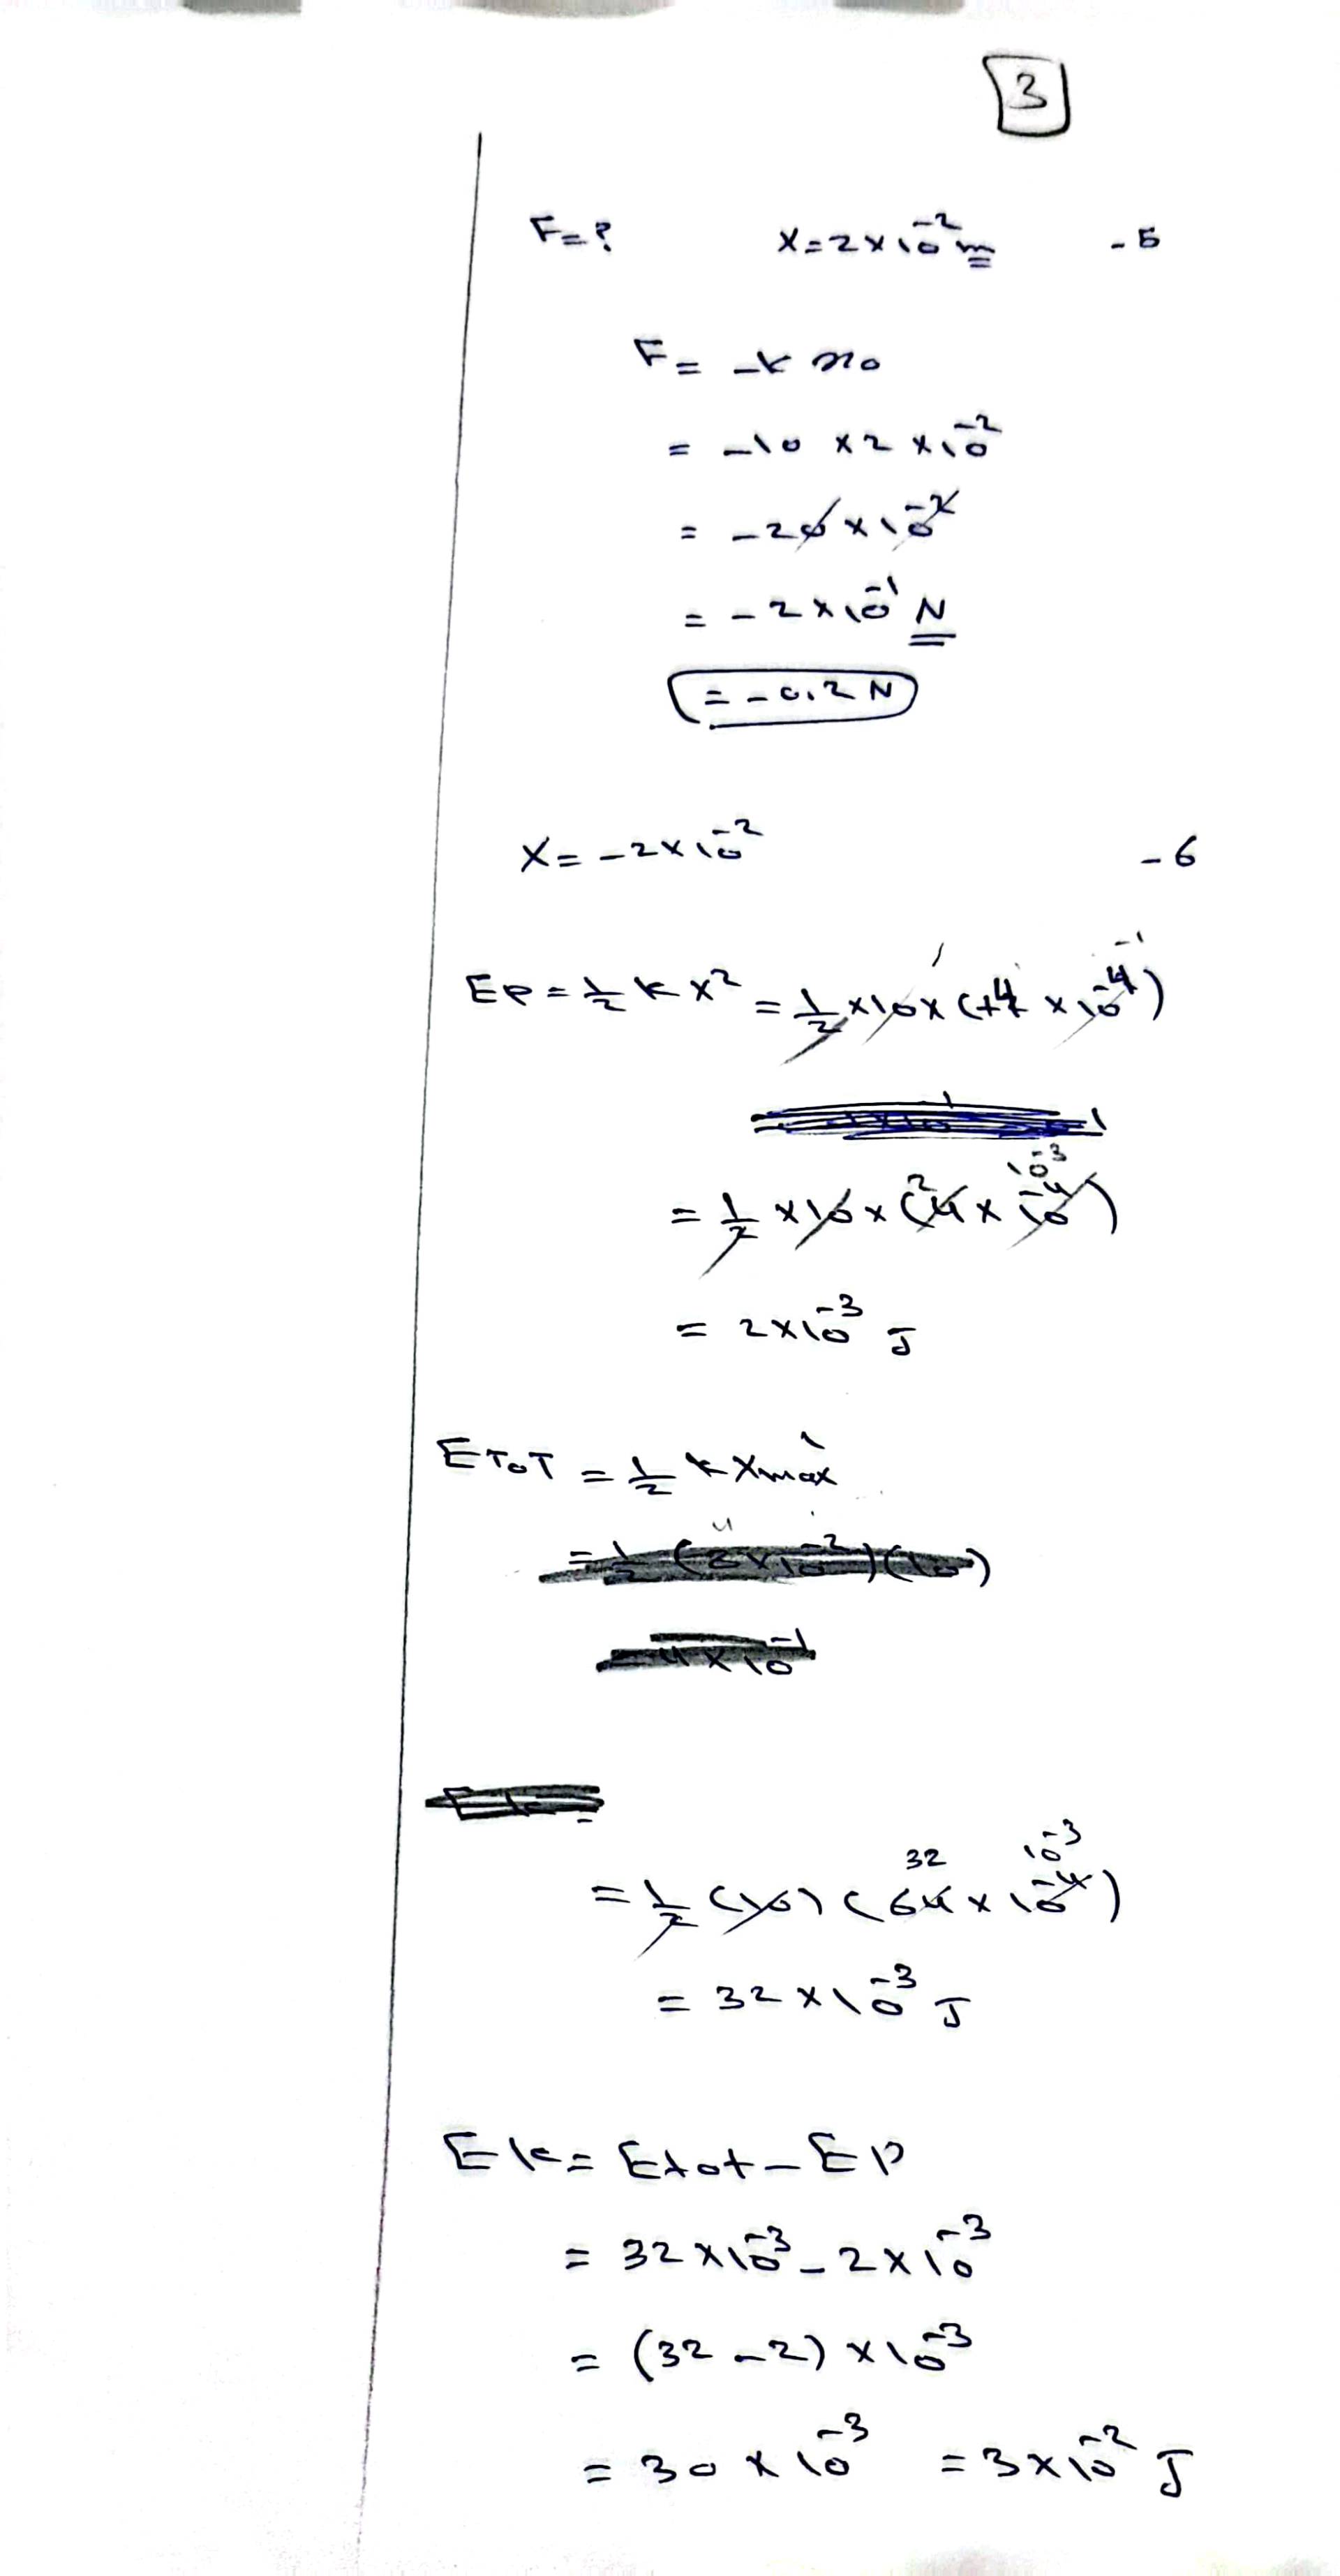 3
F = ? x = 2 × 10⁻² m - 5
F = -k x₀
= -10 × 2 × 10⁻²
= -20 × 10⁻²
= -2 × 10⁻¹ N
= -0.2 N
x = -2 × 10⁻² - 6
Ep = 1/2 k x² = 1/2 × 10 × (+4 × 10⁻⁴)
= 1/2 × 10 × (4 × 10⁻⁴) 2 10⁻³
= 2 × 10⁻³ J
E TOT = 1/2 k Xmax
= 1/2 (10) (64 × 10⁻⁴) 32 10⁻³
= 32 × 10⁻³ J
Ek = Etot - Ep
= 32 × 10⁻³ - 2 × 10⁻³
= (32 - 2) × 10⁻³
= 30 × 10⁻³ = 3 × 10⁻² J